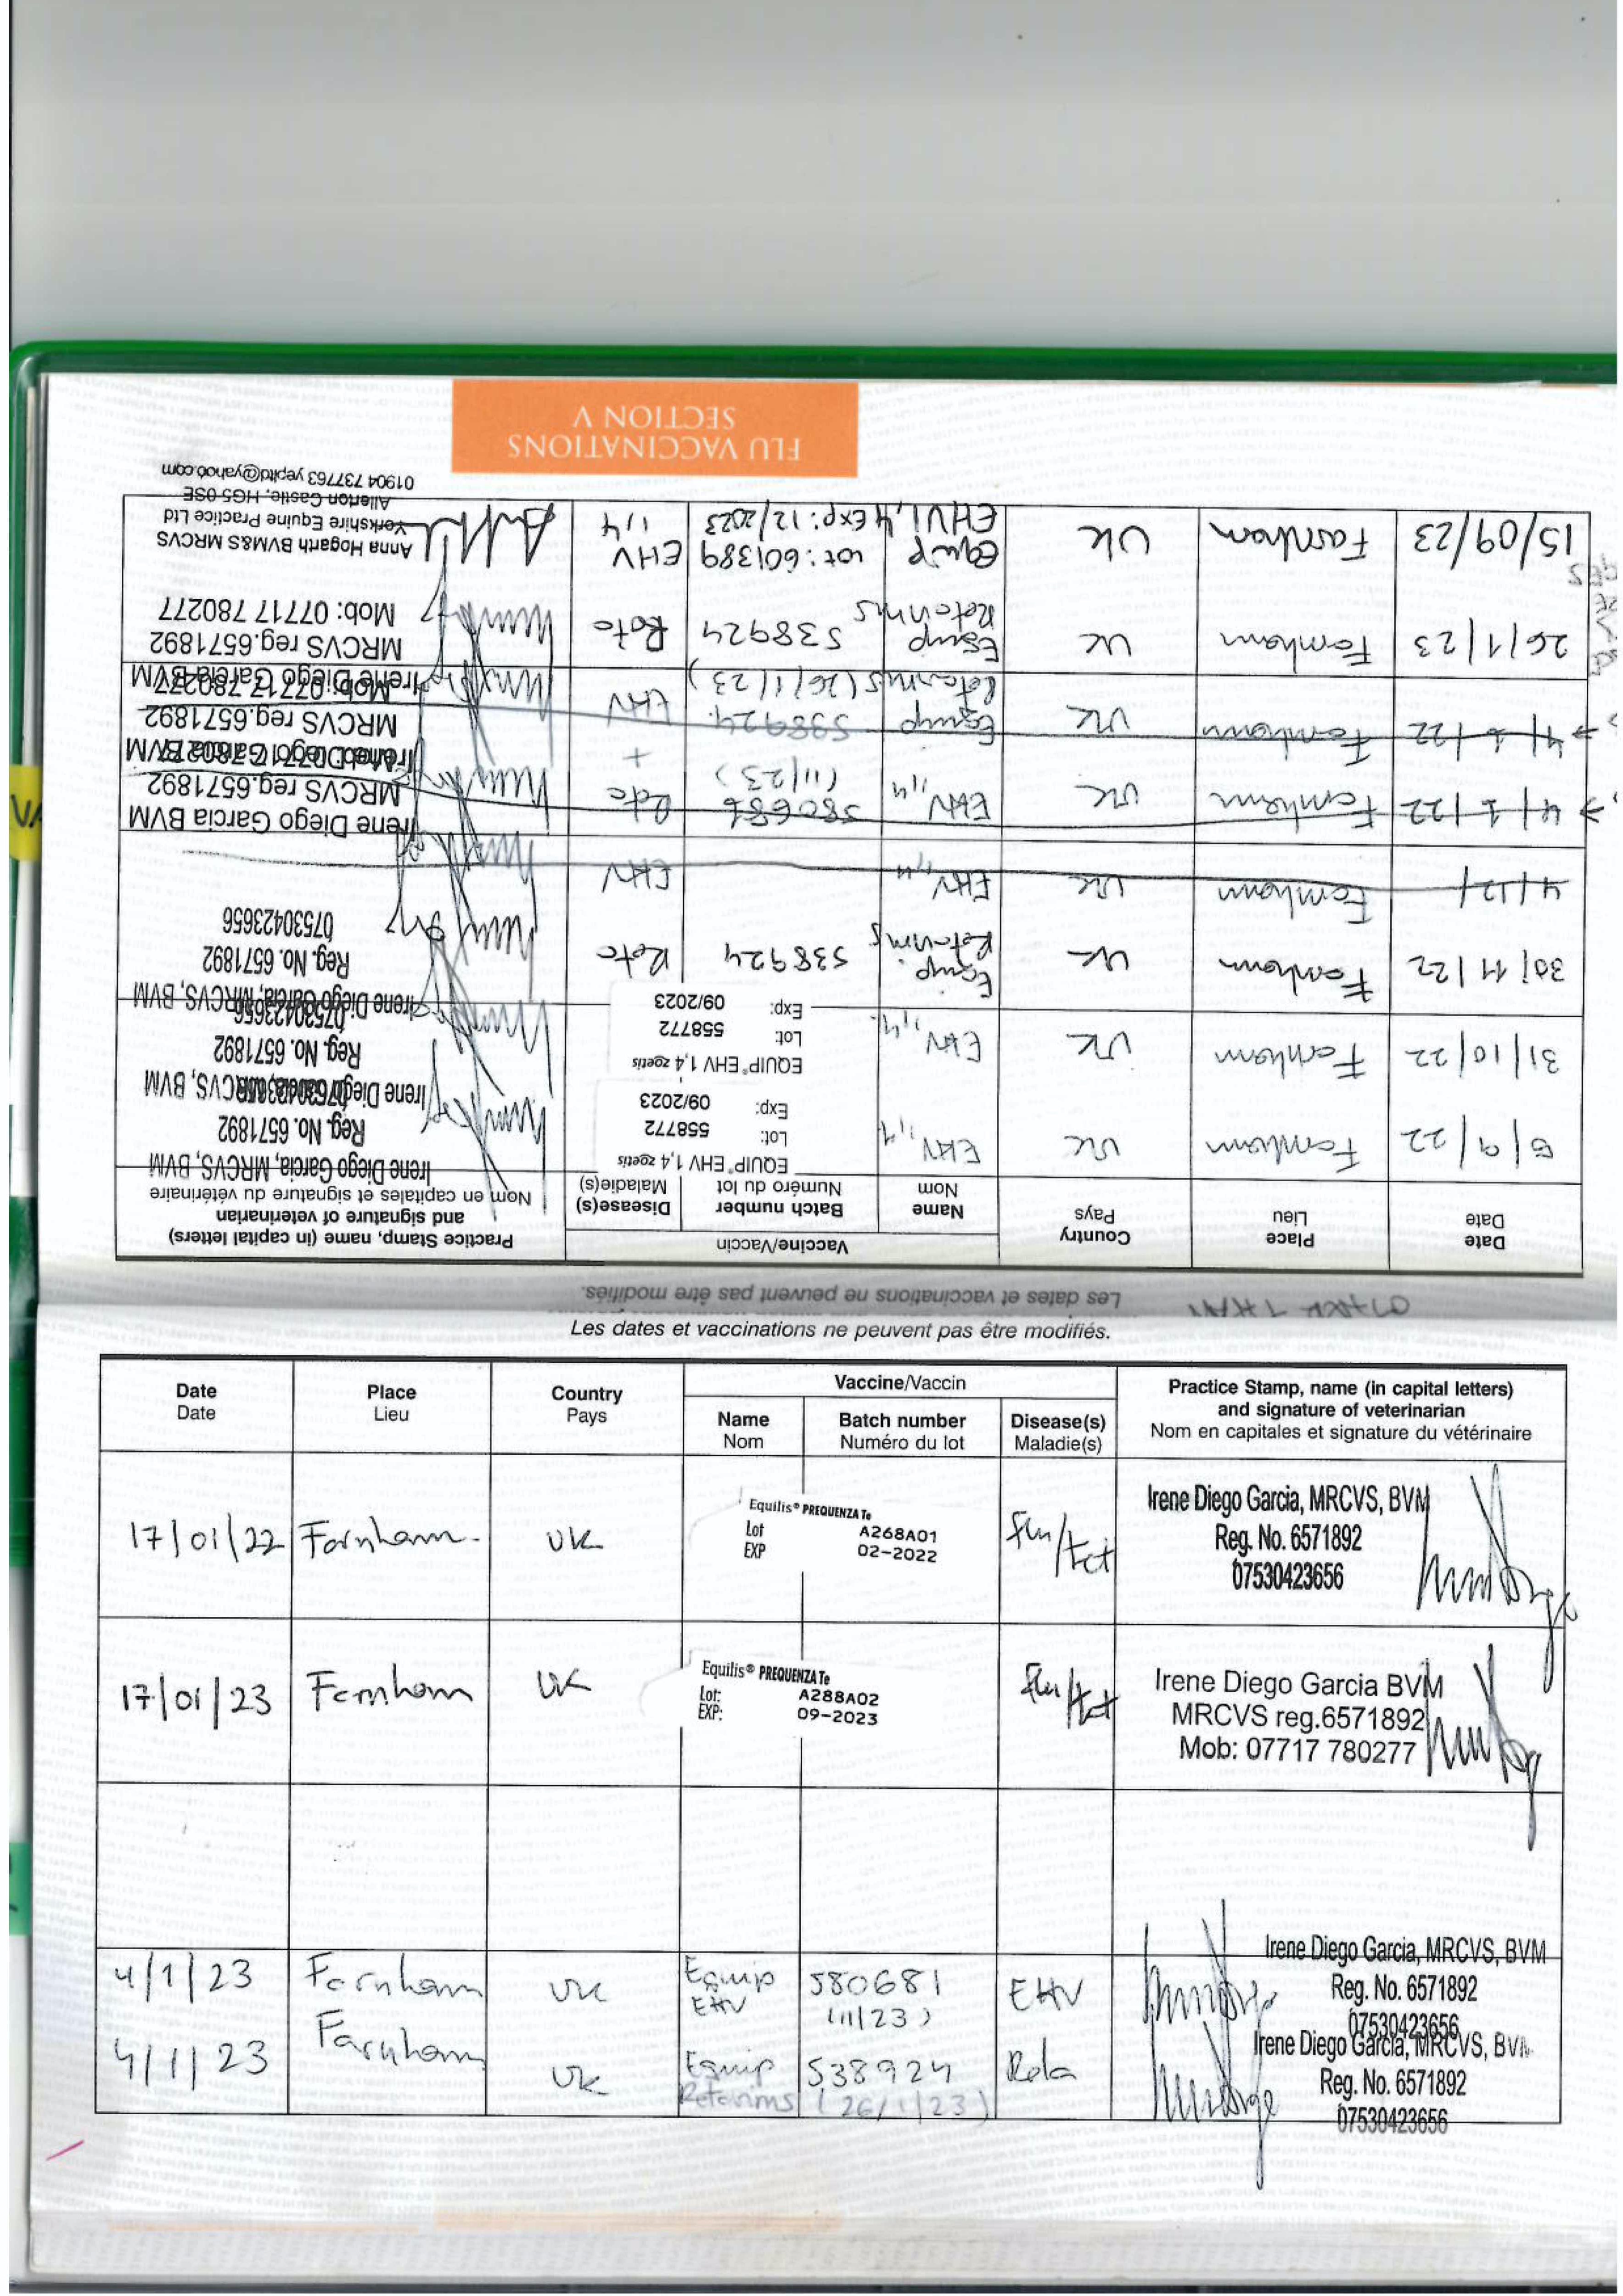 FLU VACCINATIONS
SECTION V
Les dates et vaccinations ne peuvent pas être modifiés.
Date Place Country Vaccine/Vaccin Practice Stamp, name (in capital letters)
Date Lieu Pays Name Batch number Disease(s) and signature of veterinarian
Nom Numéro du lot Maladie(s) Nom en capitales et signature du vétérinaire
5/9/22 Farnham UK EHV 1,4 EQUIP® EHV 1,4 zoetis Irene Diego Garcia, MRCVS, BVM
Lot: 558772 Reg. No. 6571892
Exp: 09/2023
31/10/22 Farnham UK EHV 1,4 EQUIP® EHV 1,4 zoetis Irene Diego Garcia, MRCVS, BVM
Lot: 558772 Reg. No. 6571892
Exp: 09/2023 07530423656
30/11/22 Farnham UK Equip 538924 Rota Irene Diego Garcia, MRCVS, BVM
Rotavirus Reg. No. 6571892
07530423656
4/12/ Farnham UK EHV 1,4 EHV
4/1/22 Farnham UK EHV 1,4 580681 Rota Irene Diego Garcia BVM
(11/23) + MRCVS reg.6571892
Mob: 07717 780277
4/1/22 Farnham UK Equip 538924 EHV Irene Diego Garcia BVM
Rotavirus (26/1/23) MRCVS reg.6571892
Mob: 07717 780277
26/1/23 Farnham UK Equip 538924 Rota Irene Diego Garcia BVM
Rotavirus MRCVS reg.6571892
Mob: 07717 780277
15/09/23 Farnham UK Equip Lot: 601389 EHV Anna Hogarth BVM&S MRCVS
EHV1,4 Exp: 12/2023 1,4 Yorkshire Equine Practice Ltd
Allerton Castle, HG5 0SE
01904 737763 yepltd@yahoo.com
Les dates et vaccinations ne peuvent pas être modifiés.
Date Place Country Vaccine/Vaccin Practice Stamp, name (in capital letters)
Date Lieu Pays Name Batch number Disease(s) and signature of veterinarian
Nom Numéro du lot Maladie(s) Nom en capitales et signature du vétérinaire
17/01/22 Farnham. UK Equilis® PREQUENZA Te Flu/tet Irene Diego Garcia, MRCVS, BVM
Lot A268A01 Reg. No. 6571892
EXP 02-2022 07530423656
17/01/23 Farnham UK Equilis® PREQUENZA Te Flu/tet Irene Diego Garcia BVM
Lot: A288A02 MRCVS reg.6571892
EXP: 09-2023 Mob: 07717 780277
4/1/23 Farnham UK Equip 580681 EHV Irene Diego Garcia, MRCVS, BVM
EHV (11/23) Reg. No. 6571892
07530423656
4/1/23 Farnham UK Equip 538924 Rota Irene Diego Garcia, MRCVS, BVM
Rotavirus (26/1/23) Reg. No. 6571892
07530423656